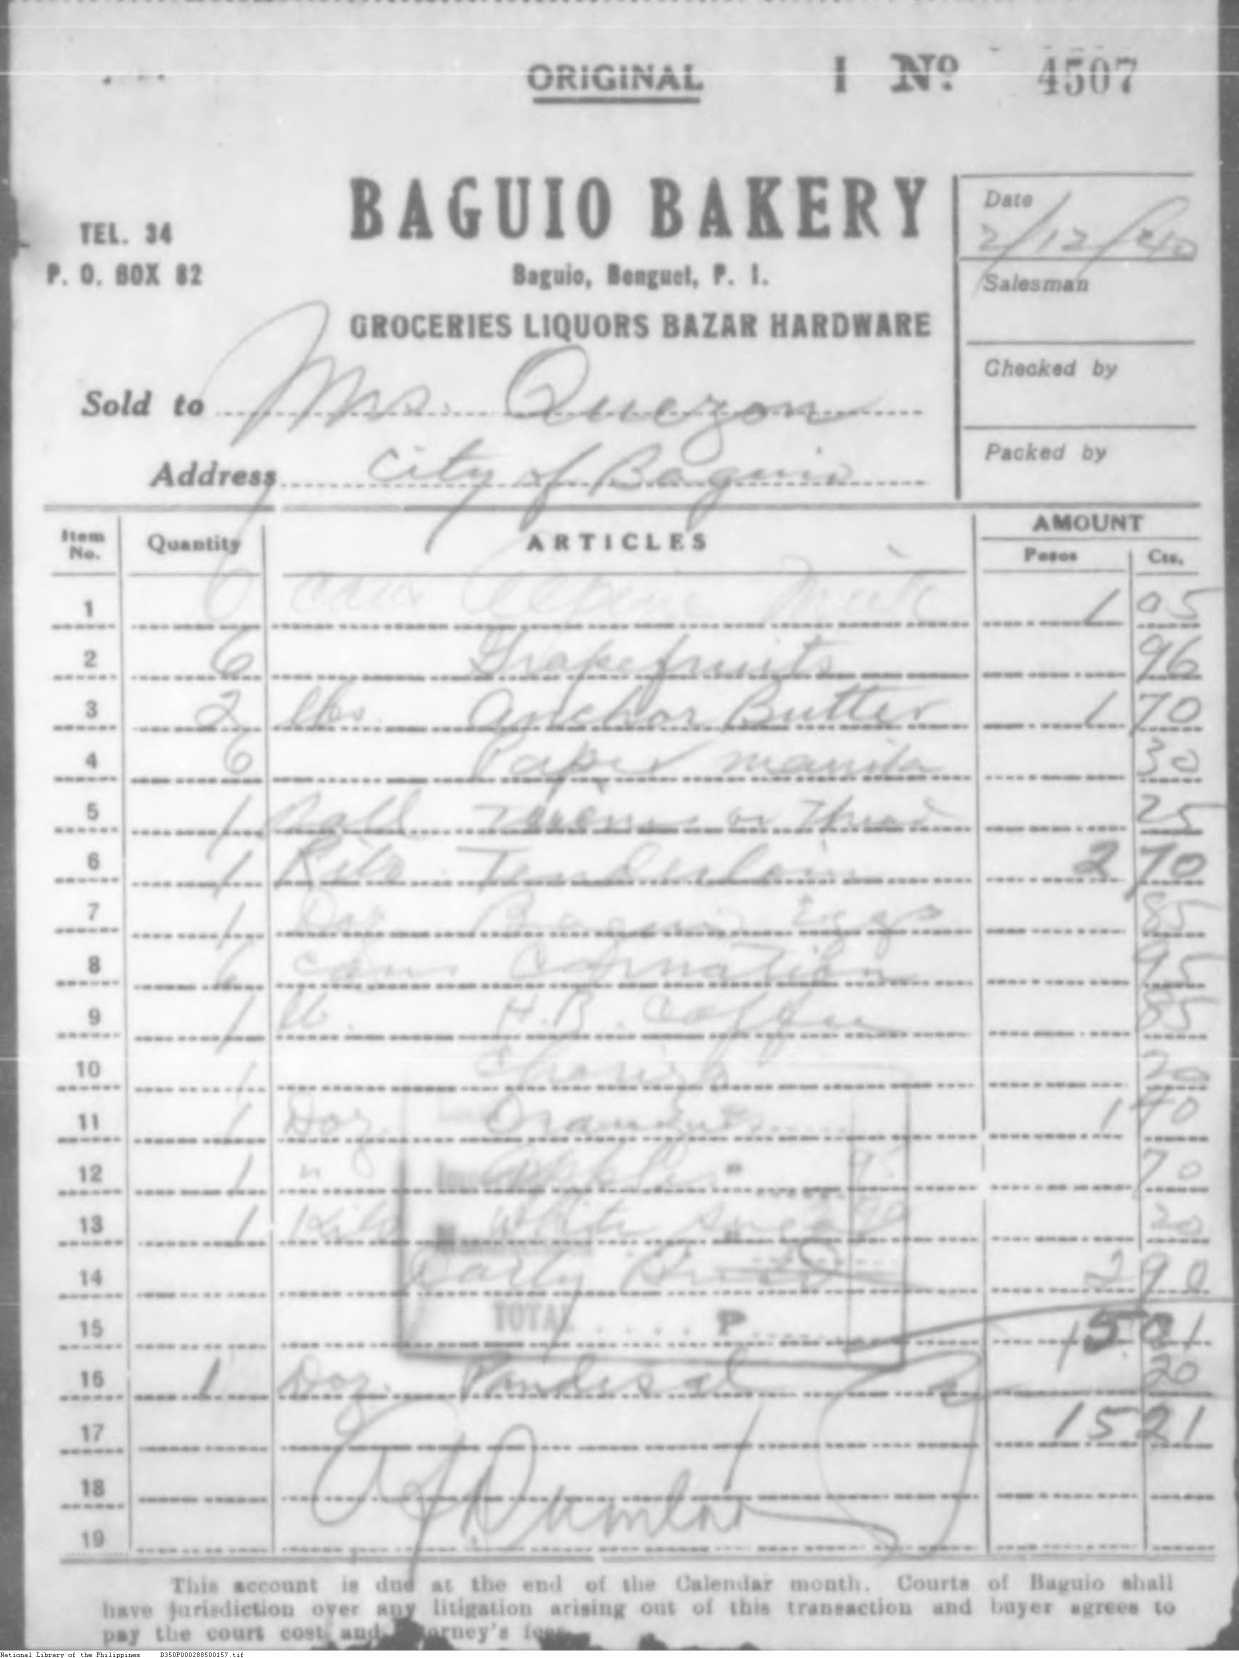 ORIGINAL I Nº 4507
BAGUIO BAKERY
TEL. 34
P. O. BOX 82
Baguio, Benguet, P. I.
GROCERIES LIQUORS BAZAR HARDWARE
Date
2/12/40
Salesman
Checked by
Packed by
Sold to Mrs. Quezon
Address City of Baguio
Item No. Quantity ARTICLES AMOUNT
Pesos Cts.
1 6 cans Alpine Milk 1 05
2 6 Grapefruits 96
3 2 lbs. Anchor Butter 1 70
4 6 Paper manila 30
5 1 Ball or 25
6 1 Kilo Tenderloin 2 70
7 1 Doz Baguio Eggs 85
8 6 cans Carnation 95
9 1 lb. H.B. Coffee 85
10 1 20
11 1 Doz. Oranges 1 40
12 1 " Apples 70
13 1 Kilo White Sugar 20
14 2 90
TOTAL P
15 15 01
16 1 Doz. Pandesal 20
17 15 21
18
19
This account is due at the end of the Calendar month. Courts of Baguio shall
have jurisdiction over any litigation arising out of this transaction and buyer agrees to
pay the court cost and
National Library of the Philippines B350P000288500157.tif